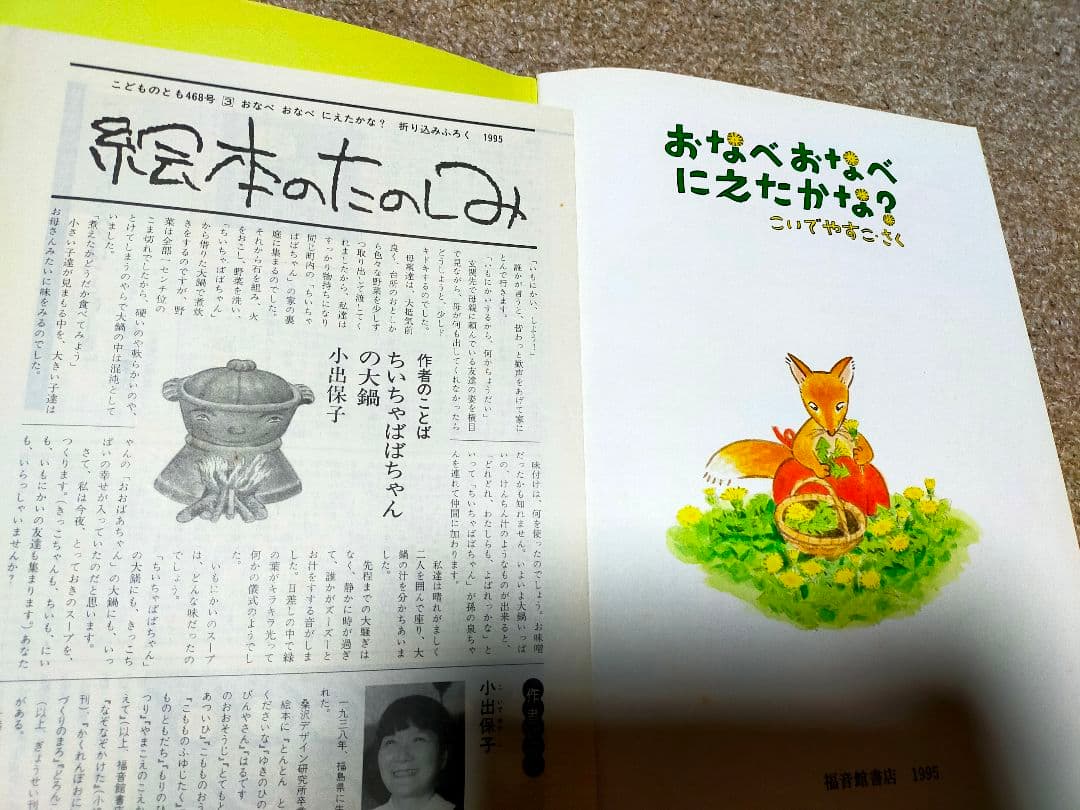 こどものとも468号 3 おなべ おなべ にえたかな? 折り込みふろく 1995
絵本のたのしみ
作者のことば
ちいちゃばばちゃん
の大鍋
小出保子
「いもにかい、しようっ！」
誰かが言うと、皆わっと歓声をあげて家に
とんで行きます。
「いもにかいするから、何かちょうだい」
玄関先で母親に頼んでいる友達の姿を横目
で見ながら、母が何も出してくれなかったら
どうしようと、少しド
キドキするのでした。
母親達は、大抵気前
良く、台所のおとこか
ら色々な野菜を少しず
つ取り出して渡してく
れましたから、私達は
すっかり物持ちになり
同じ町内の「ちいちゃ
ばばちゃん」の家の裏
庭に集まるのでした。
それから石を組み、火
をおこし、野菜を洗い、
「ちいちゃばばちゃん」
から借りた大鍋で煮炊
きをするのですが、野
菜は全部一センチ位の
こま切れでしたから、硬いのや軟らかいのや、
とけてしまうのやらで大鍋の中は混沌として
いました。
「煮えたかどうだか食べてみよう」
小さい子達が見まもる中を、大きい子達は
お母さんみたいに味をみるのでした。
味付けは、何を使ったのでしょう。お味噌
だったかも知れません。いよいよ大鍋いっぱ
いの、けんちん汁のようなものが出来ると、
「どれどれ、わたしらも、よばれっかな」と
いって「ちいちゃばばちゃん」が孫の泉ちゃ
んを連れて仲間に加わります。
私達は晴れがましく
二人を囲んで座り、大
鍋の汁を分かちあいま
した。
先程までの大騒ぎは
なく、静かに時が過ぎ
て、誰かがズーズーと
お汁をすする音がしま
した。日差しの中で緑
の葉がキラキラ光って
何かの儀式のようでし
た。
いもにかいのスープ
は、どんな味だったの
でしょう。
「ちいちゃばばちゃん」
の大鍋にも、きっこち
ゃんの「おおばあちゃん」の大鍋にも、いっ
ぱいの幸せが入っていたのだと思います。
さて、私は今夜、とっておきのスープを、
つくります。(きっこちゃんも、ちいも、にい
も、いもにかいの友達も集まります。)あなた
も、いらっしゃいませんか？
小出保子
一九三八年、福島県に生
れた。
桑沢デザイン研究所卒業
絵本に『とんとん と
くださいな』『ゆきのひの
びんやさん』『はるです
のおおそうじ』『とてもと
あついひ』『こもものおう
『こもものふゆじたく』
ものともだち』『もりのひ
つり』『やまこえのこえか
えて』(以上、福音館書店
『なぞなぞかけた』(小
刊)、『かくれんぼおに
づくりのまろ』『どろんこ
(以上、ぎょうせい刊
がある。
おなべおなべ
にえたかな?
こいでやすこ・さく
福音館書店 1995